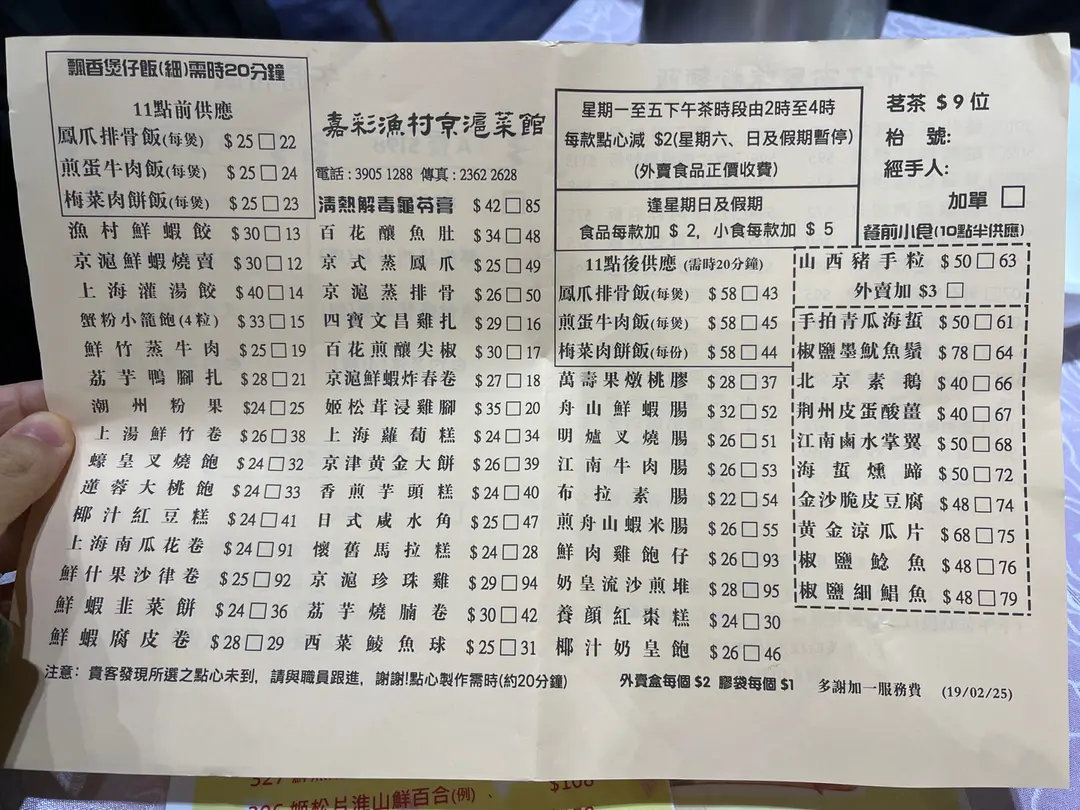 飄香煲仔飯(細)需時20分鐘
11點前供應
鳳爪排骨飯(每煲) $25 □ 22
煎蛋牛肉飯(每煲) $25 □ 24
梅菜肉餅飯(每煲) $25 □ 23
漁村鮮蝦餃 $30 □ 13
京滬鮮蝦燒賣 $30 □ 12
上海灌湯餃 $40 □ 14
蟹粉小籠飽(4粒) $33 □ 15
鮮竹蒸牛肉 $25 □ 19
荔芋鴨腳扎 $28 □ 21
潮州粉果 $24 □ 25
上湯鮮竹卷 $26 □ 38
蠔皇叉燒飽 $24 □ 32
蓮蓉大桃飽 $24 □ 33
椰汁紅豆糕 $24 □ 41
上海南瓜花卷 $24 □ 91
鮮什果沙律卷 $25 □ 92
鮮蝦韭菜餅 $24 □ 36
鮮蝦腐皮卷 $28 □ 29
嘉彩漁村京滬菜館
電話:3905 1288 傳真:2362 2628
清熱解毒龜苓膏 $42 □ 85
百花釀魚肚 $34 □ 48
京式蒸鳳爪 $25 □ 49
京滬蒸排骨 $26 □ 50
四寶文昌雞扎 $29 □ 16
百花煎釀尖椒 $30 □ 17
京滬鮮蝦炸春卷 $27 □ 18
姬松茸浸雞腳 $35 □ 20
上海蘿蔔糕 $24 □ 34
京津黃金大餅 $26 □ 39
香煎芋頭糕 $24 □ 40
日式咸水角 $25 □ 47
懷舊馬拉糕 $24 □ 28
京滬珍珠雞 $29 □ 94
荔芋燒腩卷 $30 □ 42
西菜鯪魚球 $25 □ 31
星期一至五下午茶時段由2時至4時
每款點心減 $2(星期六、日及假期暫停)
(外賣食品正價收費)
逢星期日及假期
食品每款加 $ 2, 小食每款加 $ 5
11點後供應 (需時20分鐘)
鳳爪排骨飯(每煲) $58 □ 43
煎蛋牛肉飯(每煲) $58 □ 45
梅菜肉餅飯(每份) $58 □ 44
萬壽果燉桃膠 $28 □ 37
舟山鮮蝦腸 $32 □ 52
明爐叉燒腸 $26 □ 51
江南牛肉腸 $26 □ 53
布拉素腸 $22 □ 54
煎舟山蝦米腸 $26 □ 55
鮮肉雞飽仔 $26 □ 93
奶皇流沙煎堆 $28 □ 95
養顏紅棗糕 $24 □ 30
椰汁奶皇飽 $26 □ 46
茗茶 $9 位
枱 號:
經手人:
加單 □
餐前小食(10點半供應)
山西豬手粒 $50 □ 63
外賣加 $3 □
手拍青瓜海蜇 $50 □ 61
椒鹽墨魷魚鬚 $78 □ 64
北京素鵝 $40 □ 66
荆州皮蛋酸薑 $40 □ 67
江南鹵水掌翼 $50 □ 68
海蜇燻蹄 $50 □ 72
金沙脆皮豆腐 $48 □ 74
黃金涼瓜片 $68 □ 75
椒鹽鯰魚 $48 □ 76
椒鹽細鯧魚 $48 □ 79
注意: 貴客發現所選之點心未到, 請與職員跟進, 謝謝!點心製作需時(約20分鐘) 外賣盒每個 $2 膠袋每個 $1 多謝加一服務費 (19/02/25)
$108
306 姬松片淮山鮮百合(例)